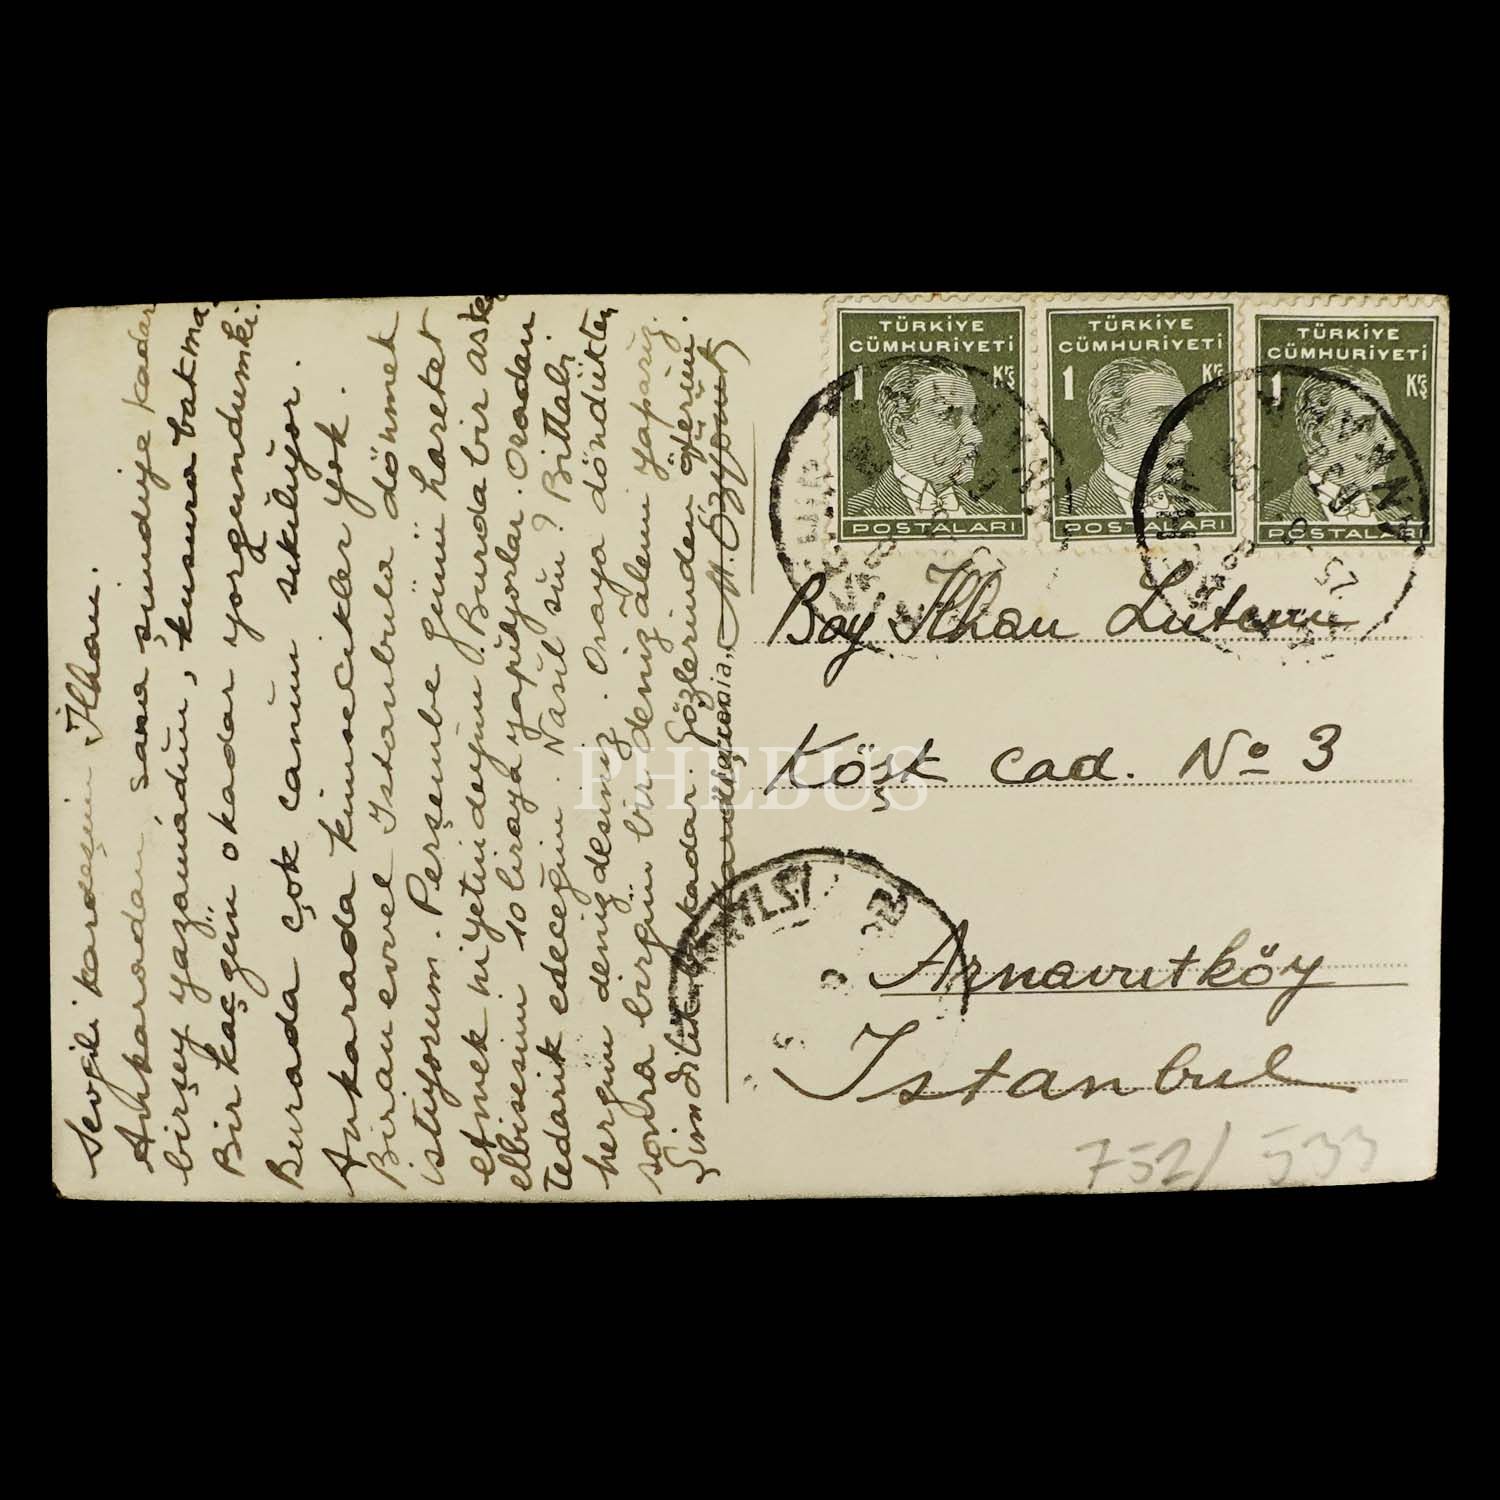 Sevgili kardeşim İlhan.
Ankaradan sana şimdiye kadar
birşey yazamadım, kusura bakma
Bir kaç gün o kadar yorgundumki.
Burada çok canım sıkılıyor.
Ankarada kimsecikler yok.
Biran evvel Istanbula dönmek
istiyorum. Perşembe günü hareket
etmek niyetindeyim. Burda bir aske
elbisesini 10 liraya yapıyorlar. Oradan
tedarik edeceğim. Nasıl sın? Bittabi
hergün denizdesiniz. Oraya döndükten
sonra birgün bir deniz âlemi yaparız.
Şimdilik bu kadar. Gözlerinden öperim.
M. Özyürek
TÜRKİYE
CÜMHURİYETİ
1 Krş
POSTALARI
TÜRKİYE
CÜMHURİYETİ
1 Krş
POSTALARI
TÜRKİYE
CÜMHURİYETİ
1 Krş
POSTALARI
Bay İlhan
Köşk cad. No 3
Arnavutköy
Istanbul
752/533
PHEBUS